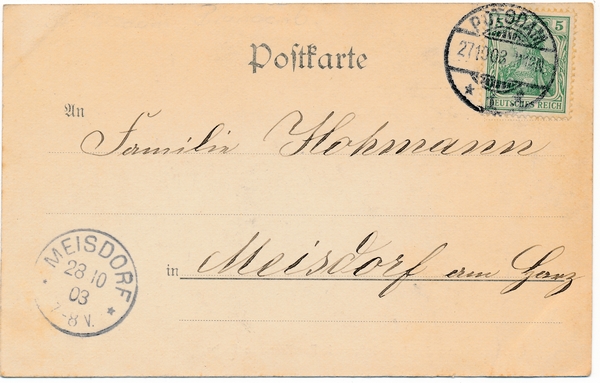 Postkarte
POTSDAM
5
DEUTSCHES REICH
An
Familie Hohmann
in Meisdorf am Harz
MEISDORF
28 10
03
7-8 N.